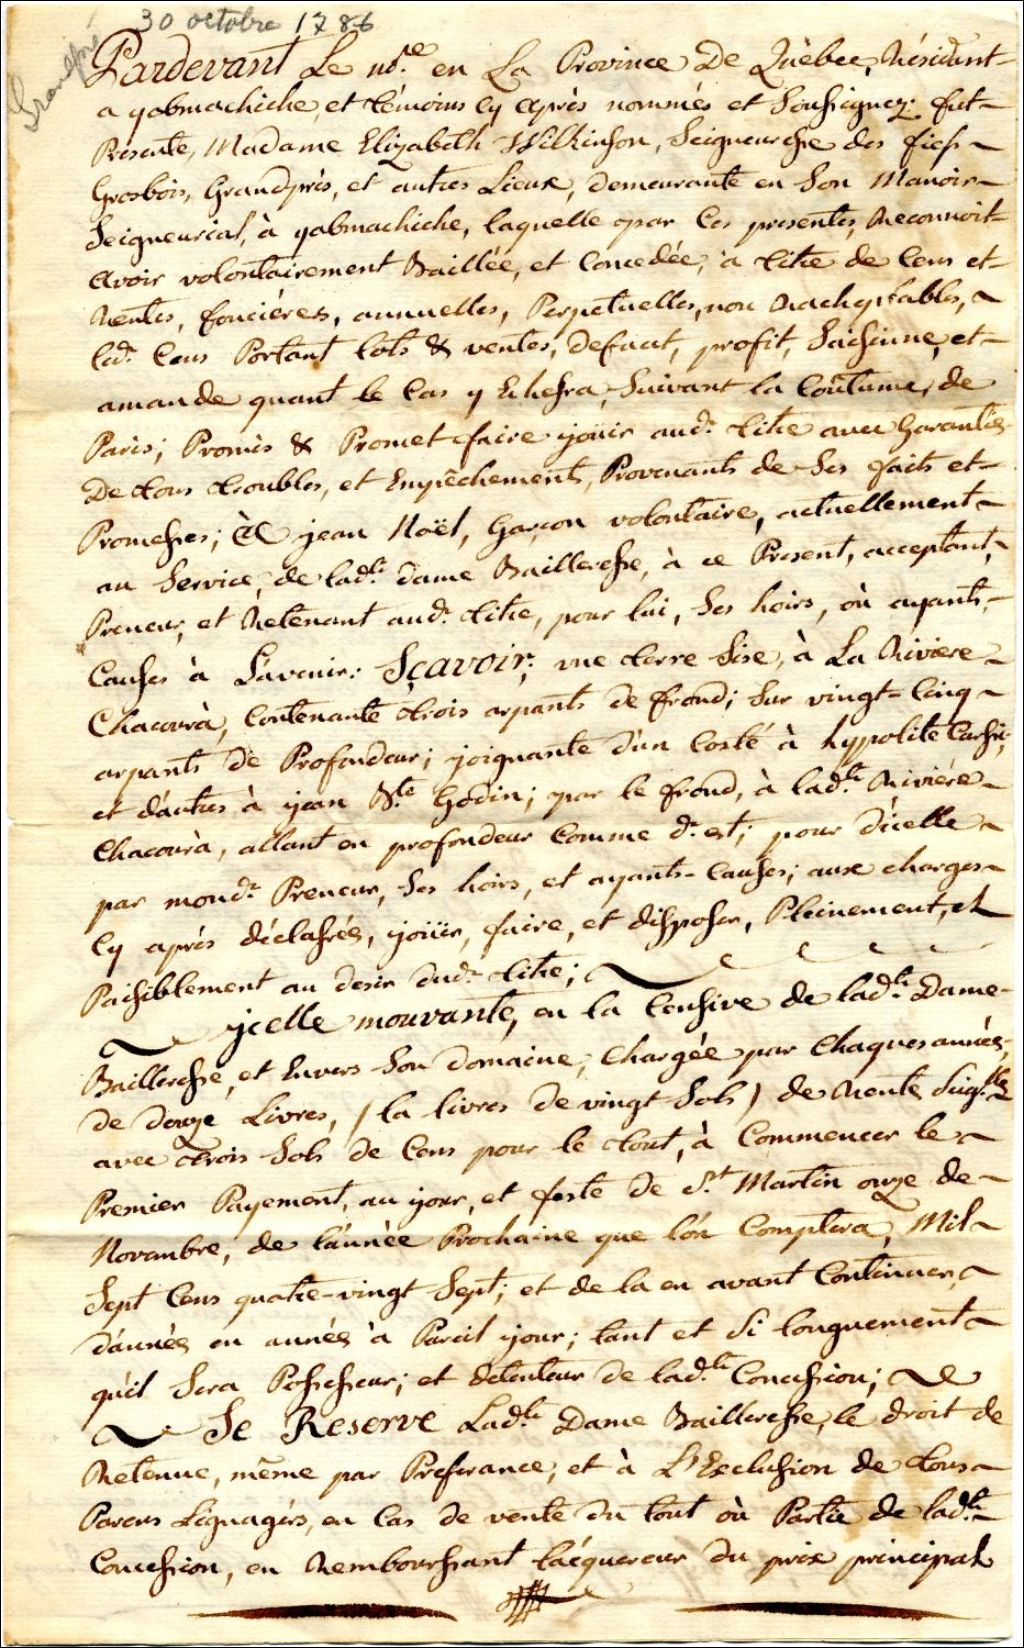 30 octobre 1786
Grandpré
Pardevant Le no.re en La Province De Quèbec, Résidant
a yabmachiche, et témoins Cy après nommés et Soussignez: fut
Presente, Madame Elizabeth Wilkinson, Seigneuresse des fiefs
Grosbois, Grandprès, et autres Lieux, demeurante en Son Manoir
Seigneurial, à yabmachiche, laquelle par Ces presentes, Reconnoit
avoir volontairement Baillée, et Concedée, à titre de Cens et
Rentes, foncières, annuelles, Perpetuelles, non Rachptables,
lad. Cens Portant Lots & ventes, defaut, profit, Saisinne, et
amande quant le Cas y Echesra, Suivant la Coûtume, de
Paris; Promis & Promet faire joüir aud. titre avec Garanties
De tous troubles, et Empêchements, Provenants de Ses faits et
Promesses; à jean Noël, Garçon volontaire, actuellement
au Service, de lad.te dame Bailleresse, à ce Present, acceptant,
Preneur, et Retenant aud. titre, pour lui, Ses hoirs, où ayants,
Causes à L'avenir: Sçavoir; une terre Sise, à La Riviere
Chacourà, Contenante trois arpants de frond; Sur vingt-Cinq
arpants de Profondeur; joignante d'un Costé à hypolite
et d'autres à jean B.te Godin; par le frond, à lad.te Riviére
Chacourà, allant en profondeur Comme d. est; pour d'icelle
par mond. Preneur, Ses hoirs, et ayants-Causes; aux charges
Cy après déclasrés, joüir, faire, et disposer, Pleinement, et
Paisiblement au desir dud. titre;
ycelle mouvante, en la Censive de lad.te Dame
Bailleresse, et Envers Son domaine, Chargée par Chaques années,
de douze Livres, (la livres de vingt Sols) de Rente Seig.lle
avec trois Sols de Cens pour le tout, à Commencer le
Premier Payement, au jour, et feste de S.t Martin onze de
Novembre, de l'année Prochaine que l'on Comptera, Mil
Sept Cens quatre-vingt Sept; et de la en avant Continuer,
d'année en année à Pareil jour; tant et Si longuement
qu'il Sera Possesseur; et detenteur de lad.te Concession;
Se Reserve Lad.te Dame Bailleresse, le droit de
Retenue, même par Preferance, et à L'Exclusion de tous
Parens Lignagérs, en Cas de vente du tout où Partie de lad.te
Concession, en Remboursant l'acquereur du prix principal